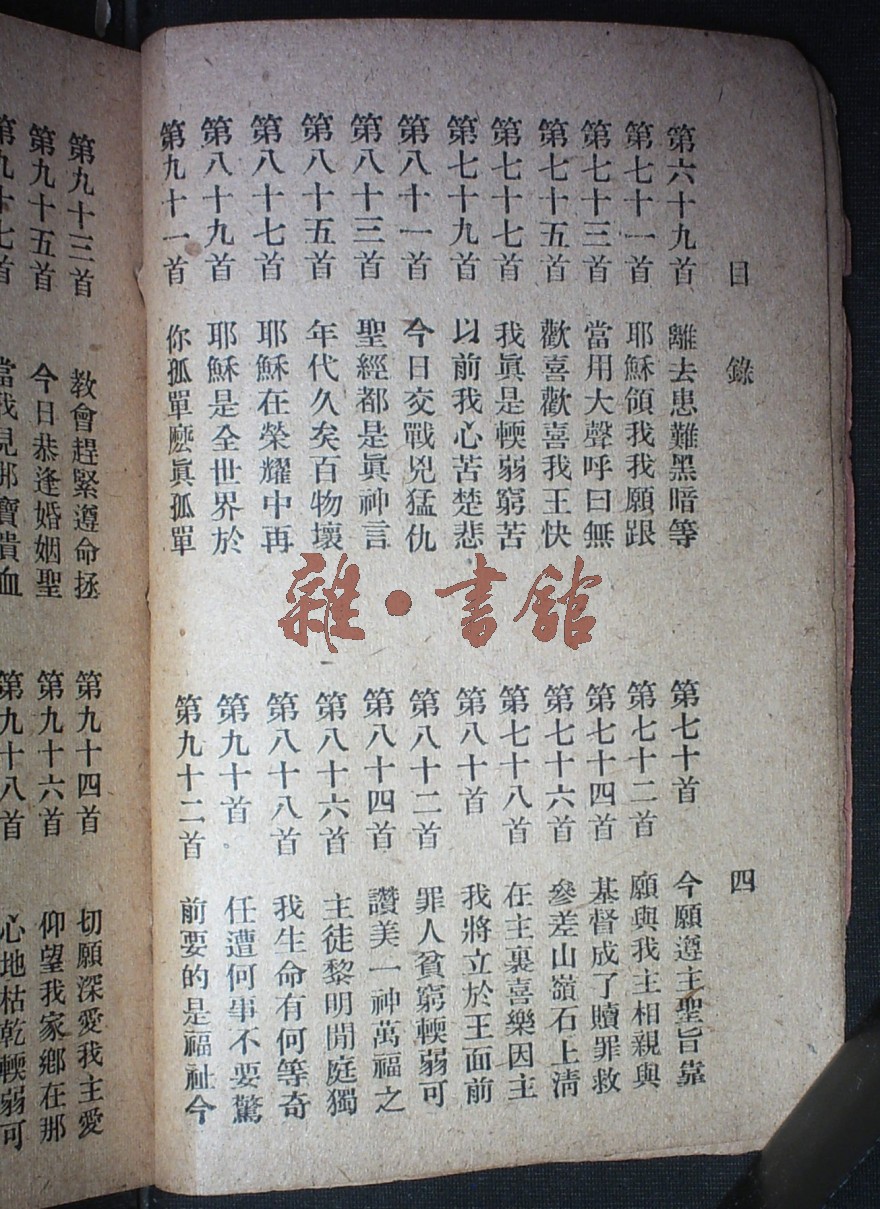 目錄 四
第六十九首 離去患難黑暗等
第七十首 今願遵主聖旨靠
第七十一首 耶穌領我我願跟
第七十二首 願與我主相親與
第七十三首 當用大聲呼曰無
第七十四首 基督成了贖罪救
第七十五首 歡喜歡喜我王快
第七十六首 參差山嶺石上清
第七十七首 我眞是輭弱窮苦
第七十八首 在主裏喜樂因主
第七十九首 以前我心苦楚悲
第八十首 我將立於王面前
第八十一首 今日交戰兇猛仇
第八十二首 罪人貧窮輭弱可
第八十三首 聖經都是眞神言
第八十四首 讚美一神萬福之
第八十五首 年代久矣百物壞
第八十六首 主徒黎明閒庭獨
第八十七首 耶穌在榮耀中再
第八十八首 我生命有何等奇
第八十九首 耶穌是全世界於
第九十首 任遭何事不要驚
第九十一首 你孤單麽眞孤單
第九十二首 前要的是福祉今
第九十三首 教會趕緊遵命拯
第九十四首 切願深愛我主愛
第九十五首 今日恭逢婚姻聖
第九十六首 仰望我家鄉在那
第九十七首 當我見那寶貴血
第九十八首 心地枯乾輭弱可
雜·書館